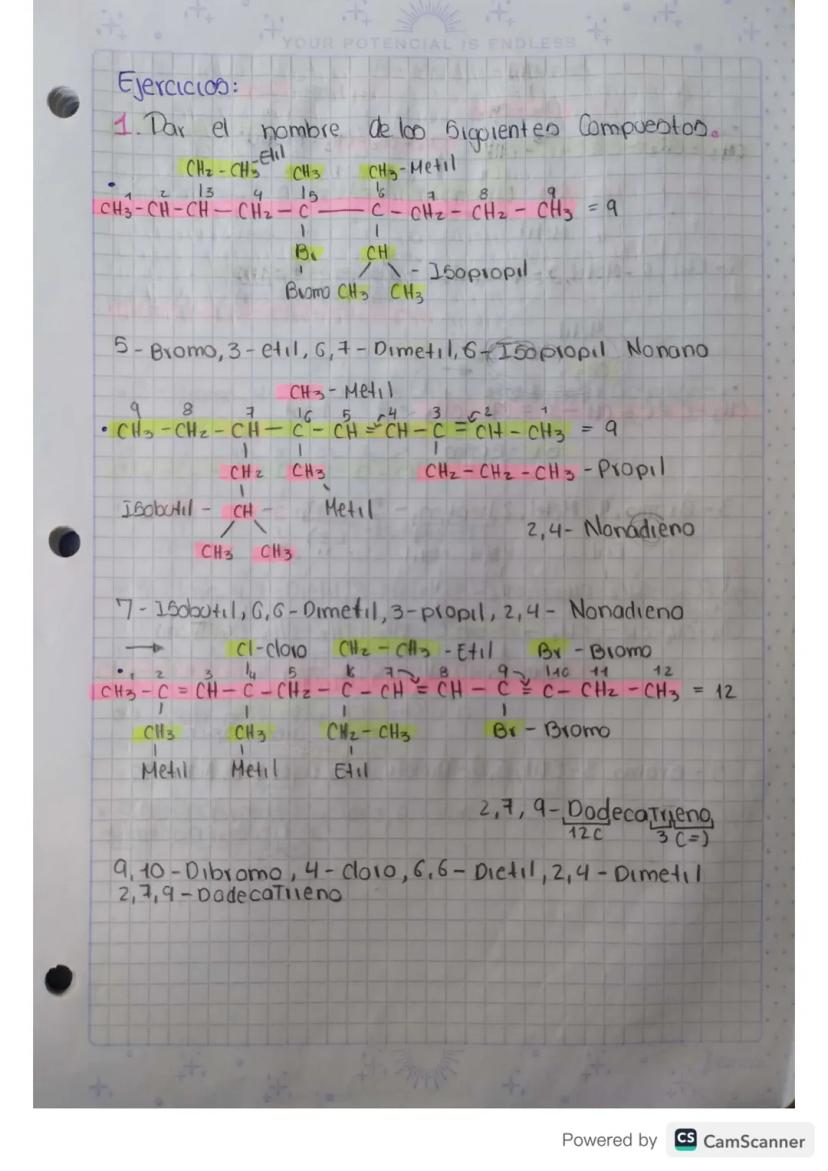 YOUR POTENCIAL IS ENDLESS
Ejercicios:
1. Dar el nombre de los siguientes compuestos.
CH2 - CH3 - Etil CH3 CH3 - Metil
1 2 3 4 5 6 7 8 9
CH3 - CH - CH — CH2 — C — C - CH2 - CH2 - CH3 = 9
Br CH
Bromo CH3 CH3 - Isopropil
5 - Bromo, 3 - etil, 6, 7 - Dimetil, 6 - Isopropil Nonano
CH3 - Metil
9 8 7 6 5 4 3 2 1
CH3 - CH2 - CH — C - CH = CH - C = CH - CH3 = 9
CH2 CH3 CH2 - CH2 - CH3 - Propil
Isobutil - CH - Metil
2,4 - Nonadieno
CH3 CH3
7 - Isobutil, 6,6 - Dimetil, 3 - propil, 2,4 - Nonadieno
→ Cl - cloro CH2 - CH3 - Etil Br - Bromo
1 2 3 4 5 6 7 8 9 10 11 12
CH3 - C = CH - C - CH2 - C - CH = CH - C = C - CH2 - CH3 = 12
CH3 CH3 CH2 - CH3 Br - Bromo
Metil Metil Etil
2,7,9 - DodecaTrieno
12C 3 (=)
9,10 - Dibromo, 4 - cloro, 6,6 - Dietil, 2,4 - Dimetil
2,7,9 - DodecaTrieno
Powered by CS CamScanner